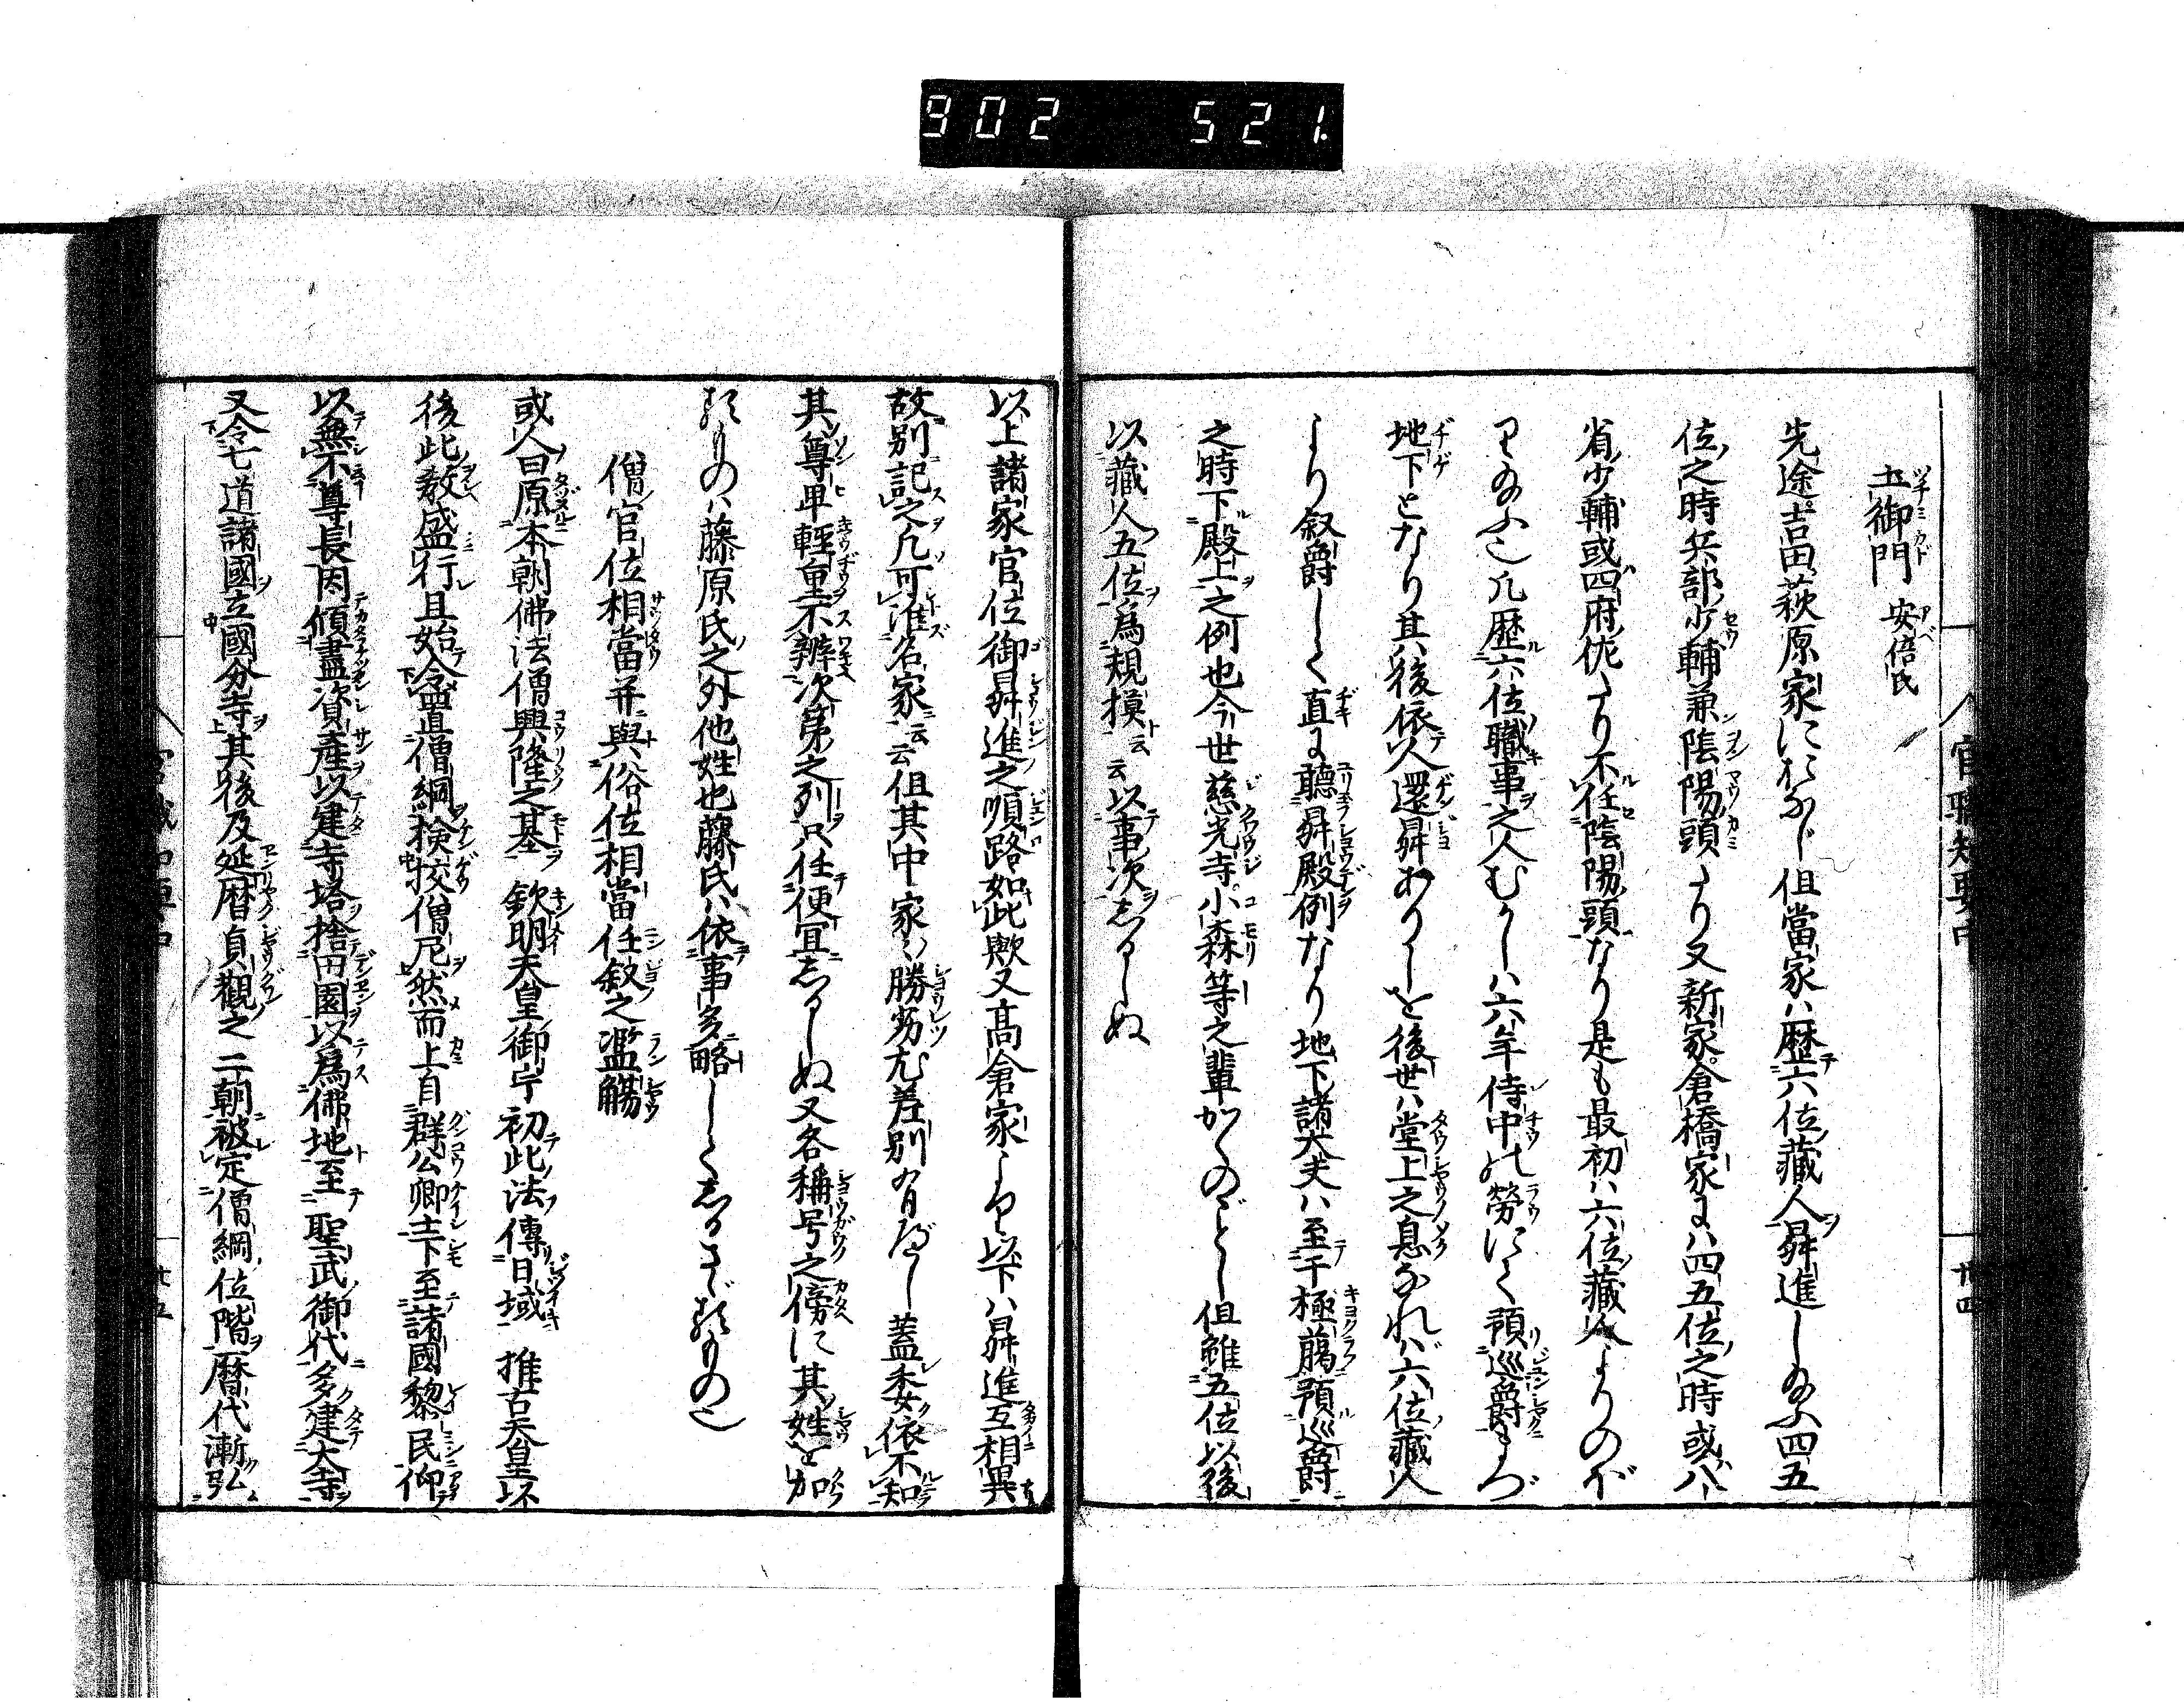 902 521.
官職知要中
廿四
土御門 安倍氏
先途吉田萩原家におなじ但當家ハ歴六位藏人昇進し給ふ四五
位之時兵部少輔兼陰陽頭たり又新家倉橋家にハ四五位之時或ハ八
省少輔或四府佐たり不任陰陽頭なり是も最初ハ六位藏人よりのぼ
り給ふ也凡歴六位職事之人むかしハ六年侍中の勞にて預巡爵まづ
地下となり其後依人還昇ありしを後世ハ堂上之息なれバ六位藏人
より叙爵しく直に聽昇殿例なり地下諸大夫ハ至于極﨟預巡爵
之時下殿上之例也今世慈光寺小森等之輩かくのごとし但雖五位以後
以藏人五位爲規摸云云以事次志るしぬ
以上諸家官位御昇進之順路如此歟又髙倉家より以下ハ昇進互相異
故別記之凡可准名家云云但其中家々勝劣尤差別有べし蓋委依不知
其尊卑輕重不辨次第之列只任便宜志るしぬ又各稱号之傍に其姓を加
るものハ藤原氏之外他姓也藤氏ハ依事多略しく志るさゞるもの也
僧官位相當并與俗位相當任叙之濫觴
或人曰原本朝佛法僧興隆之基 欽明天皇御宇初此法傳日域 推古天皇以
後此教盛行且始令置僧綱檢校僧尼然而上自群公卿士下至諸國黎民仰
以無不尊長因傾盡資産以建寺塔捨田園以爲佛地至 聖武御代多建大寺
又令七道諸國立國分寺其後及延暦貞觀之二朝被定僧綱位階暦代漸弘
廿五